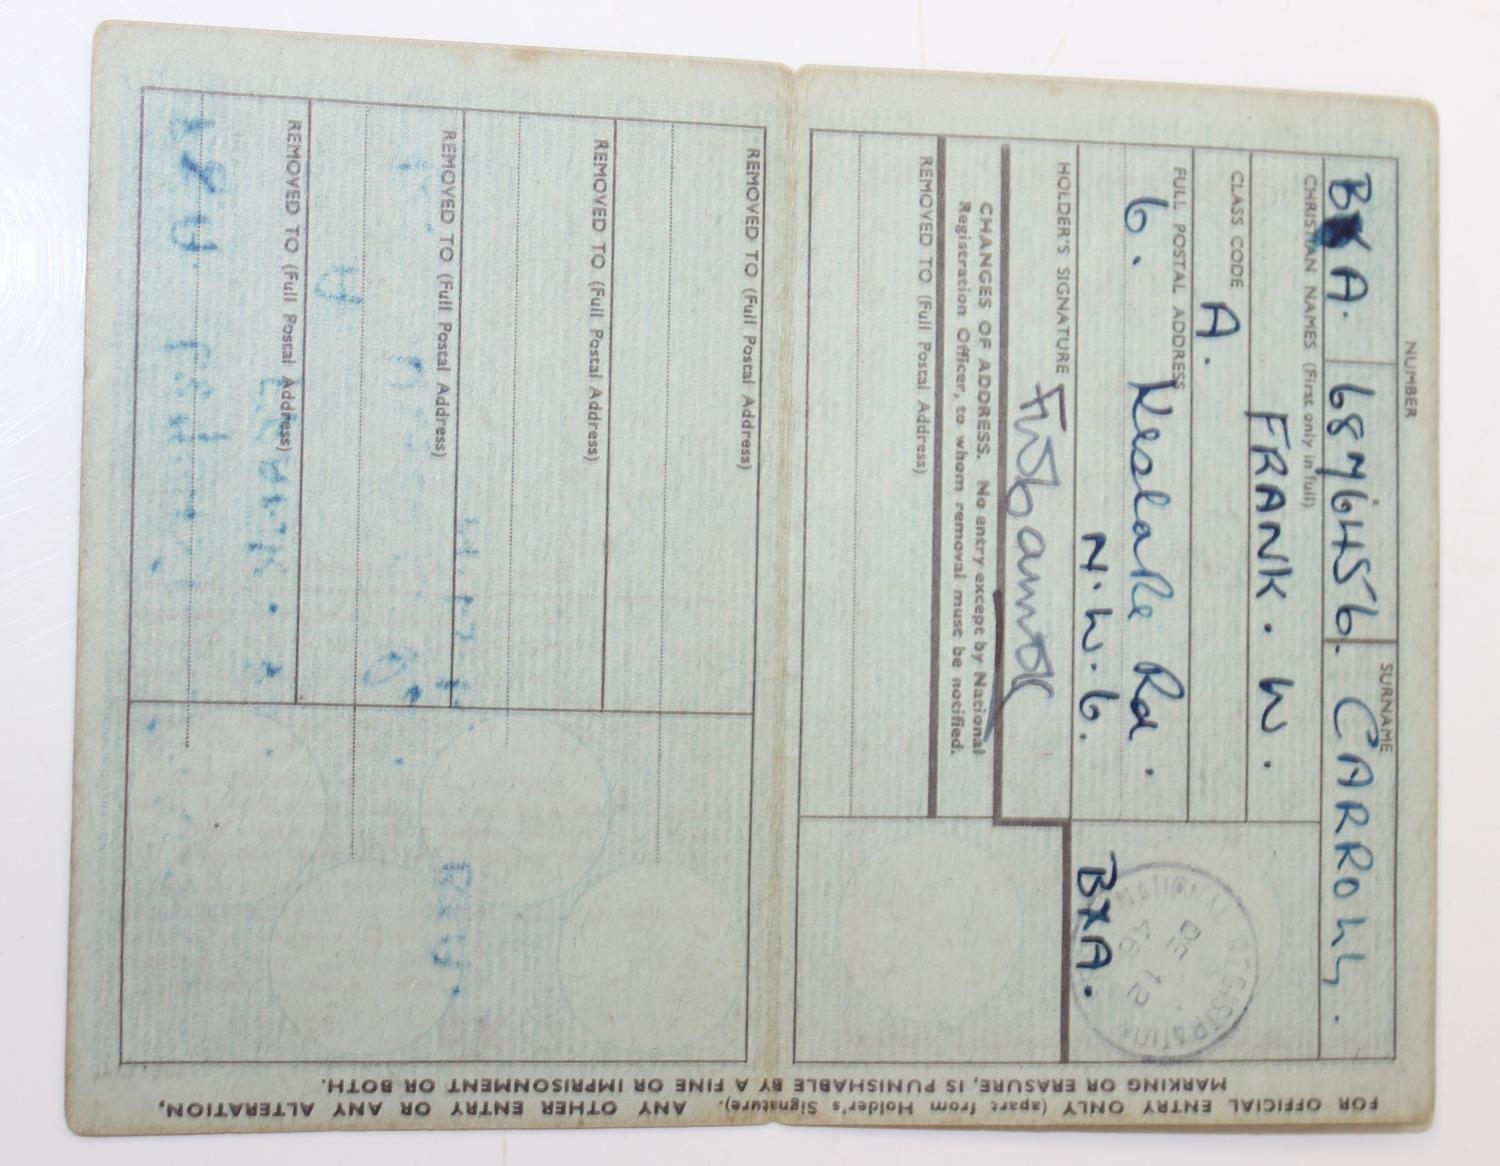 NUMBER SURNAME
BXA. 68 CARROLL.
CHRISTIAN NAMES (First only in full)
FRANK. W.
CLASS CODE
A.
FULL POSTAL ADDRESS
6. Rd.
N.W.6.
HOLDER'S SIGNATURE
BXA.
NATIONAL REGISTRATION
12
DE
46
CHANGES OF ADDRESS. No entry except by National
Registration Officer, to whom removal must be notified.
REMOVED TO (Full Postal Address)
REMOVED TO (Full Postal Address)
REMOVED TO (Full Postal Address)
REMOVED TO (Full Postal Address)
REMOVED TO (Full Postal Address)
FOR OFFICIAL ENTRY ONLY (apart from Holder's Signature). ANY OTHER ENTRY OR ANY ALTERATION,
MARKING OR ERASURE, IS PUNISHABLE BY A FINE OR IMPRISONMENT OR BOTH.